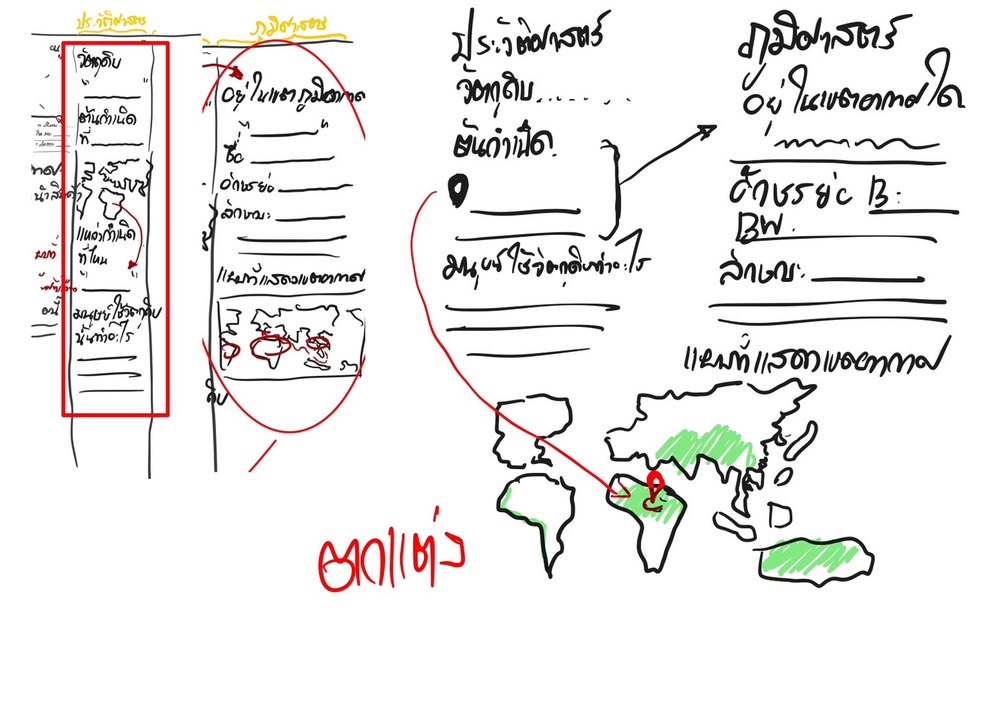 ประวัติศาสตร์
วัตถุดิบ
"                "
ต้นกำเนิด
ที่
แหล่งกำเนิด
ที่ไหน
"        "
มนุษย์ใช้วัตถุดิบ
นั้นทำอะไร
ภูมิศาสตร์
อยู่ในเขตภูมิอากาศ
"            "
ชื่อ
อักษรย่อ
ลักษณะ
แผนที่แสดงเขตอากาศ
ประวัติศาสตร์
วัตถุดิบ..........
ต้นกำเนิด
มนุษย์ใช้วัตถุดิบทำอะไร
ภูมิศาสตร์
อยู่ในเขตอากาศใด
อักษรย่อ B:
BW
ลักษณะ:
แผนที่แสดงเขตอากาศ
ตกแต่ง